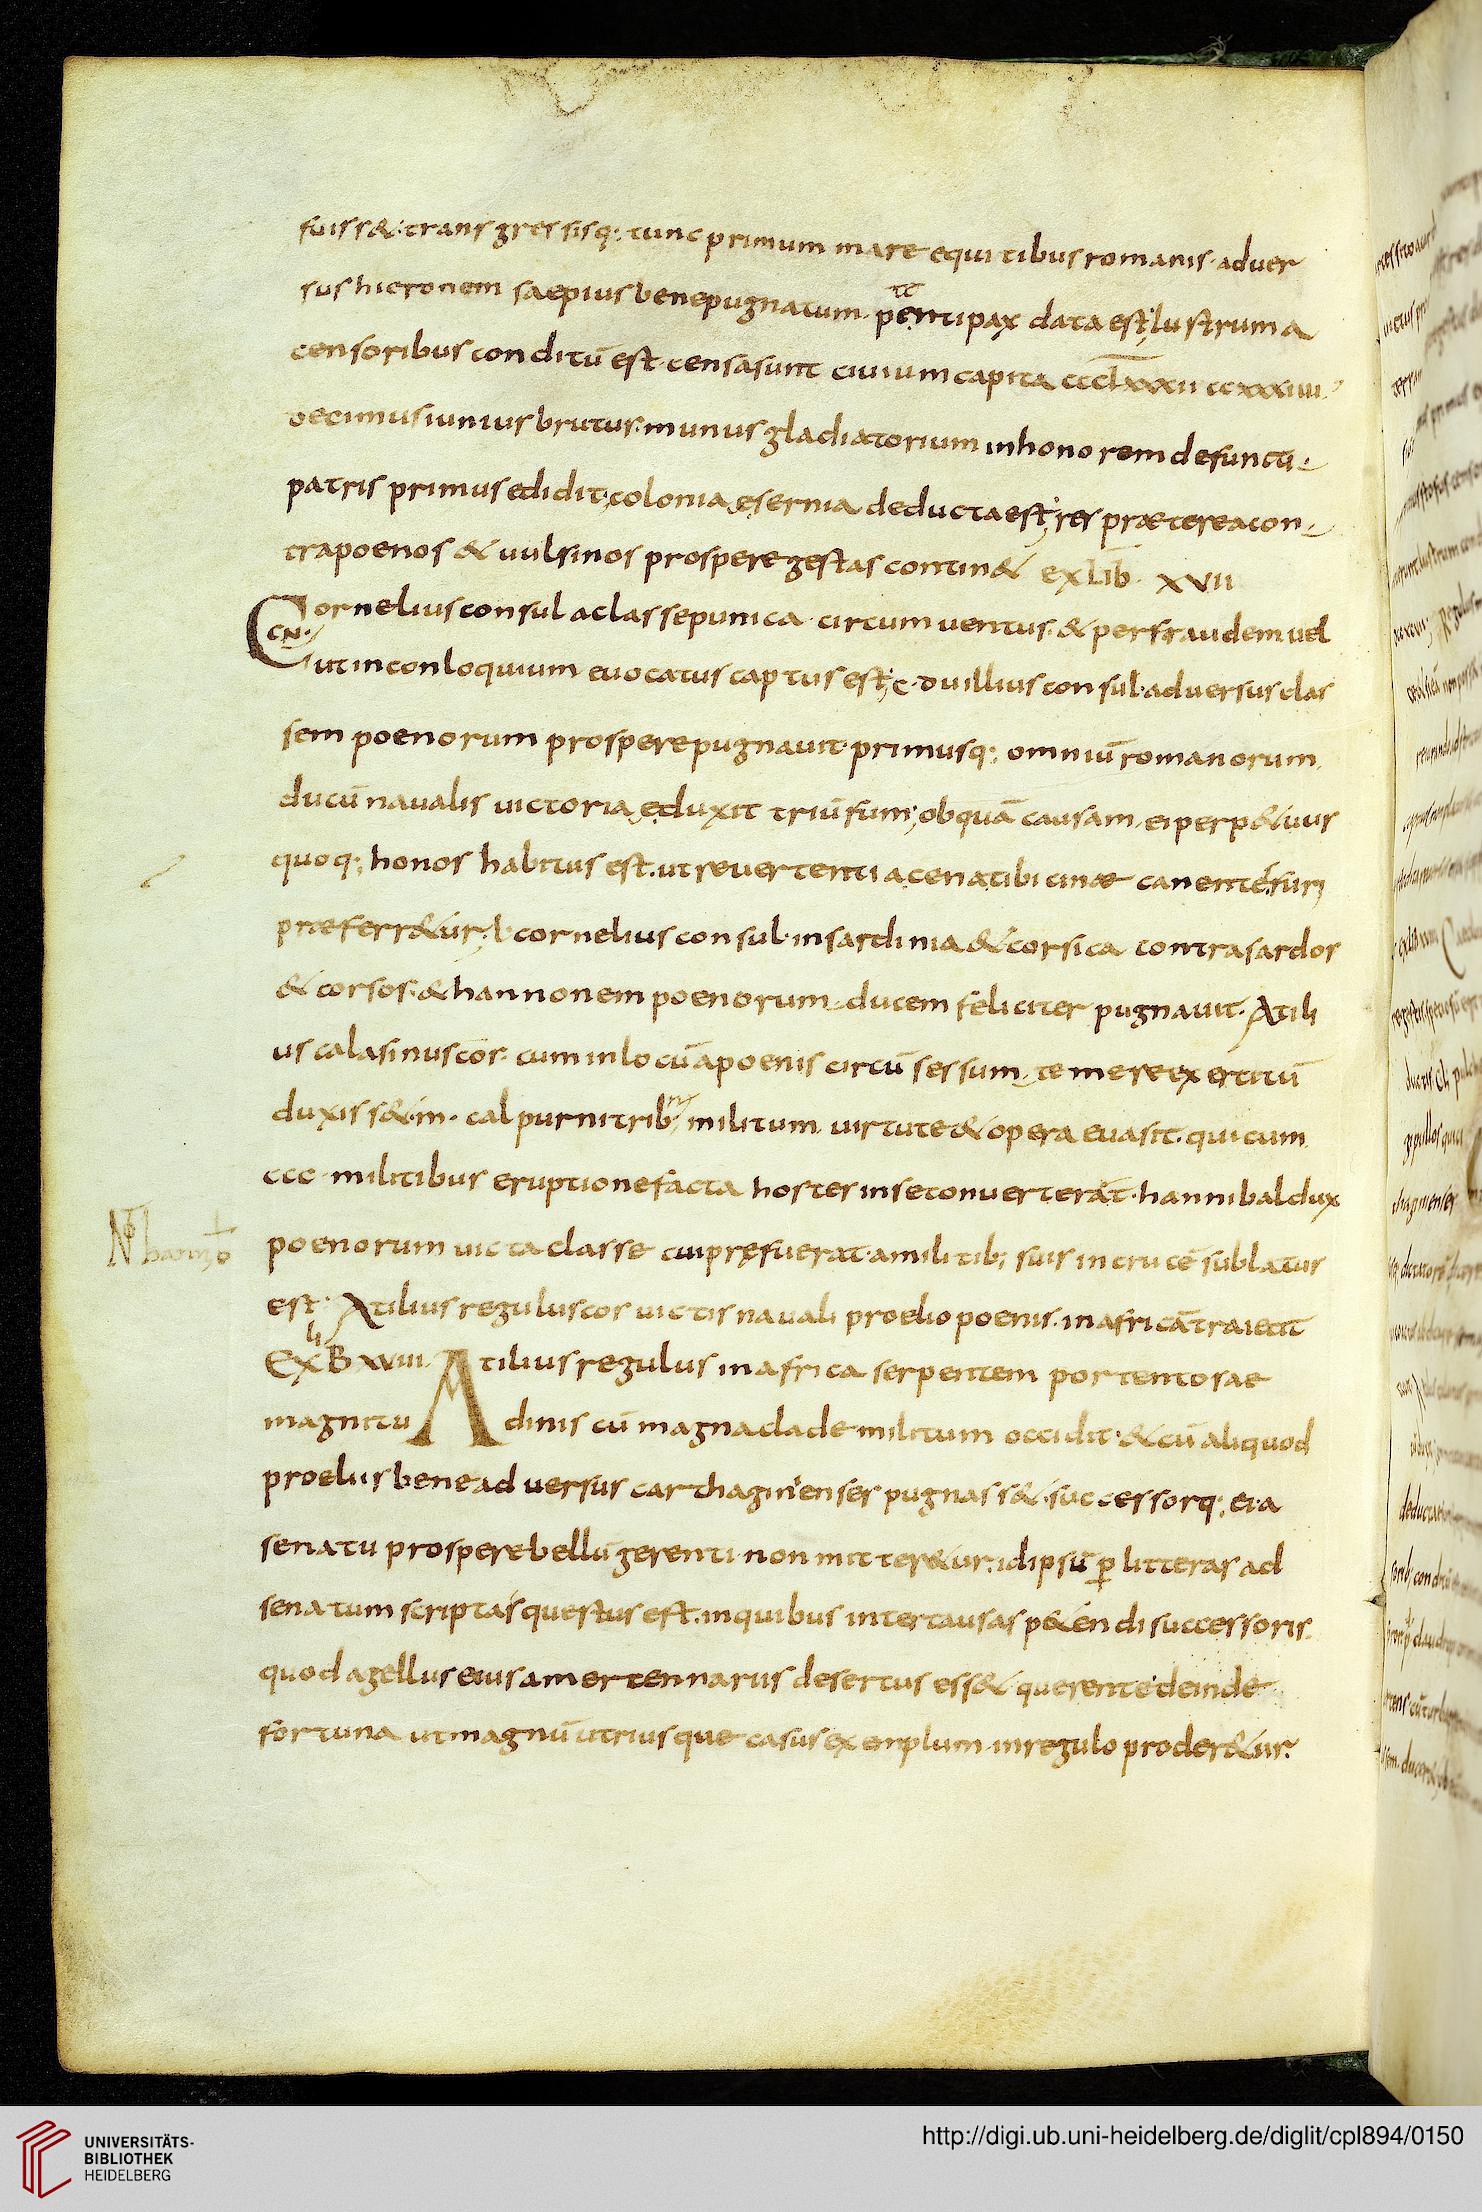 fuiss&. trans gressisq:. tunc primum mare equitibus romanis. aduer
sus hieronem saepius bene pugnatum. petenti pax data est; lustrum a
censoribus conditū est. censa sunt ciuium capita ccclxxxii ccxxxiiii.
decimus iunius brutus. munus gladiatorium in honorem defuncti
patris primus edidit; colonia ęsernia deducta est; res præterea con
tra poenos & uulsinos prospere gestas contin& ex lib. xvii
Cornelius consul a classe punica circumuentus. & per fraudem uel
CN.
ut in conloquium euocatus captus est; c. duillius consul. aduersus clas
sem poenorum prospere pugnauit. primusq:. omniū romanorum
ducū naualis uictoriæ duxit triūfum; ob quā causam. ei perp&uus
quoq:, honos habitus est. ut reuertenti a cena tibicinæ canente. fun
præferr&ur; l. cornelius consul. in sardinia & corsica contra sardos
& corsos. & hannonem poenorum ducem feliciter pugnauit. Atili
us calasinus cos. cum in locū a poenis circūsessum. temere exercitū
duxiss&. m. calpurni trib; militum uirtute & opera euasit. qui cum
ccc militibus eruptione facta hostes in se conuerterāt. hannibal dux
poenorum uicta classe cui pręfuerat. a militib; suis in crucē sublatus
est. Atilius regulus cos uictis nauali proelio poenis. in africā traiecit
EX liB xviii. Atilius regulus in africa serpentem portentosae
magnitudinis cū magna clade militum occidit. & cū aliquod
proeliis bene aduersus carthaginienses pugnass&. successorq:, ei a
senatu prospere bellū gerenti non mitter&ur. id ipsū p litteras ad
senatum scriptas questus est. in quibus inter causas p&endi successoris.
quod agellus eius a mercennariis desertus ess& querente deinde
fortuna ut magnū utriusque casus exemplum in regulo proder&ur.
UNIVERSITÄTS-
BIBLIOTHEK
HEIDELBERG
http://digi.ub.uni-heidelberg.de/diglit/cpl894/0150